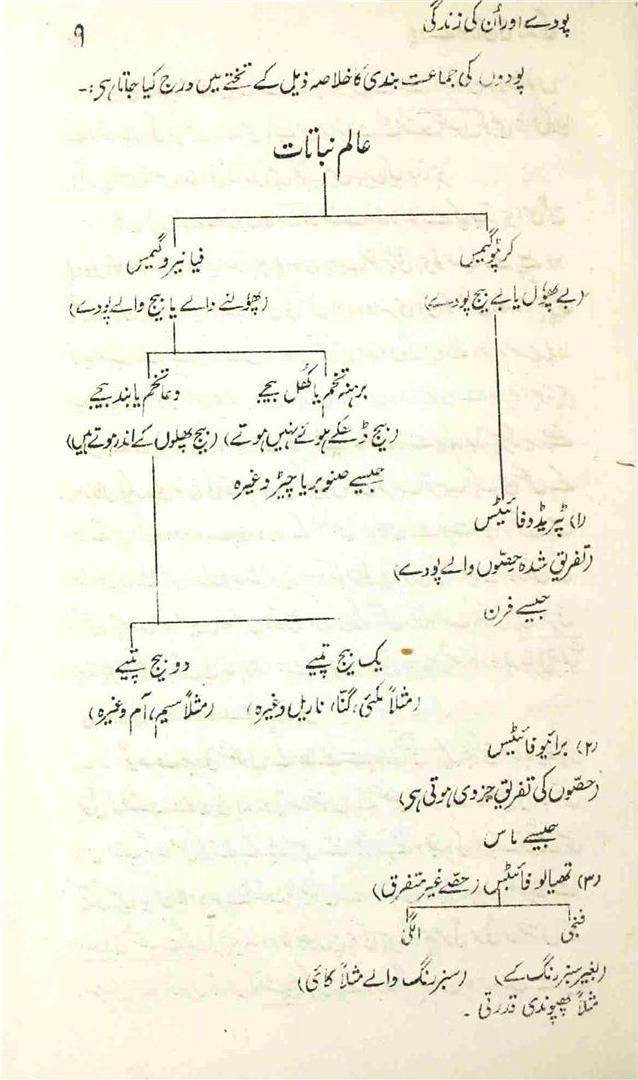 پودے اور اُن کی زندگی
۹
پودوں کی جماعت بندی کا خلاصہ ذیل کے تختے میں درج کیا جاتا ہی:۔
عالم نباتات
کرپٹوگیمس
فیانیروگیمس
(بے پھوُل یا بے بیج پودے)
(پھوُلنے والے یا بیج والے پودے)
برہنہ تخم یا کھُل بیجے
دعا تخم یا بند بیجے
(بیج ڈھکے ہوئے نہیں ہوتے)
(بیج پھلوں کے اندر ہوتے ہیں)
جیسے صنوبر یا چیڑ وغیرہ
(۱) ٹیریڈوفائیٹس
(تفریق شدہ حصّوں والے پودے)
جیسے فرن
یک بیج پتیے
دو بیج پتیے
(مثلاً مکئی، گنّا، ناریل وغیرہ)
(مثلاً سیم، آم وغیرہ)
(۲) برائیوفائیٹس
(حصّوں کی تفریق جزوی ہوتی ہی)
جیسے ماس
(۳) تھیالوفائیٹس (حصّے غیر متفرق)
فنجی
الگی
(بغیر سبز رنگ کے)
(سبز رنگ والے مثلاً کائی)
مثلاً پھپوندی قدرتی ۔